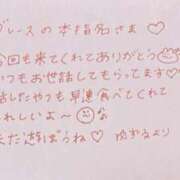 ブレースの本指名さま ♡
今回も来てくれてありがとう
いつもお世話してもらってます♡
話したやつも早速食べてくれて
うれしいよ～
また遊ぼうね
より